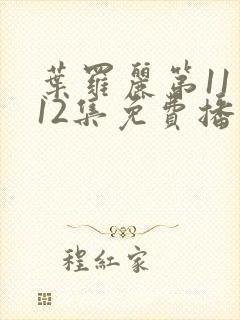 葉羅麗第11
12集免費播
程紅家